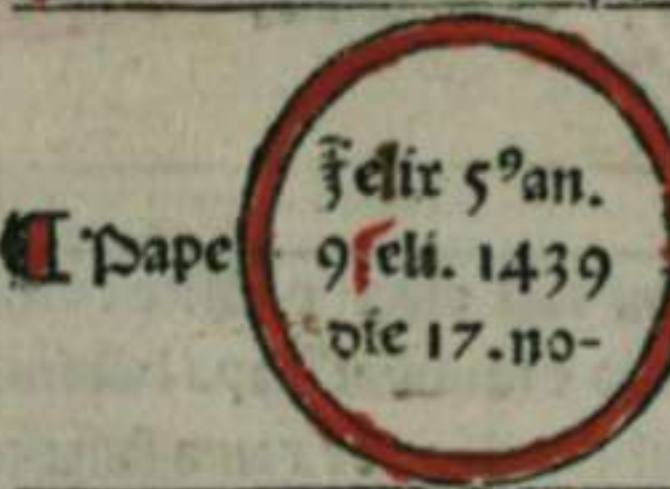 ¶ Pape
Felix 5⁹ an.
9 Feli. 1439
die 17. no-